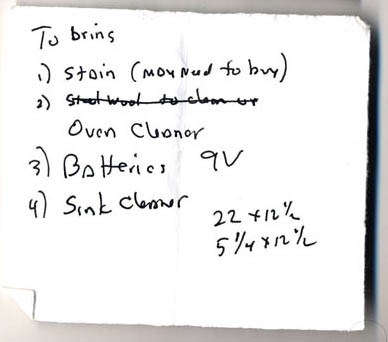 To bring
1) Stain (may need to buy)
2) Steel wool to clean up
Oven Cleaner
3) Batteries 9V
4) Sink cleaner
22 x 12 1/2
5 1/4 x 12 1/2